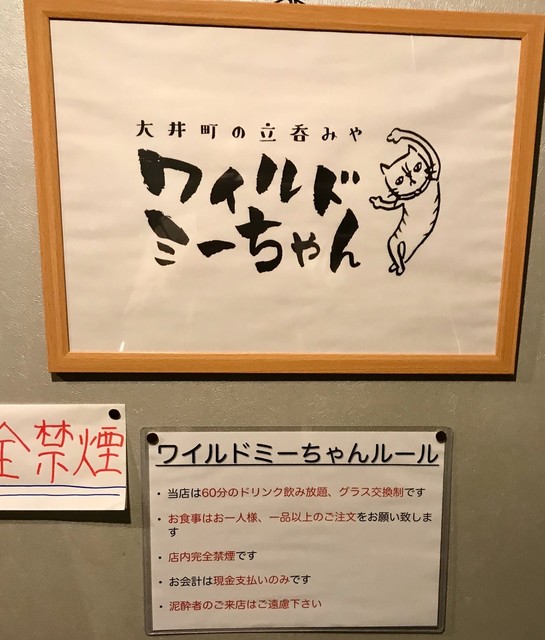 大井町の立呑みや
ワイルド
ミーちゃん
全禁煙
ワイルドミーちゃんルール
・当店は60分のドリンク飲み放題、グラス交換制です
・お食事はお一人様、一品以上のご注文をお願い致しま
す
・店内完全禁煙です
・お会計は現金支払いのみです
・泥酔者のご来店はご遠慮下さい